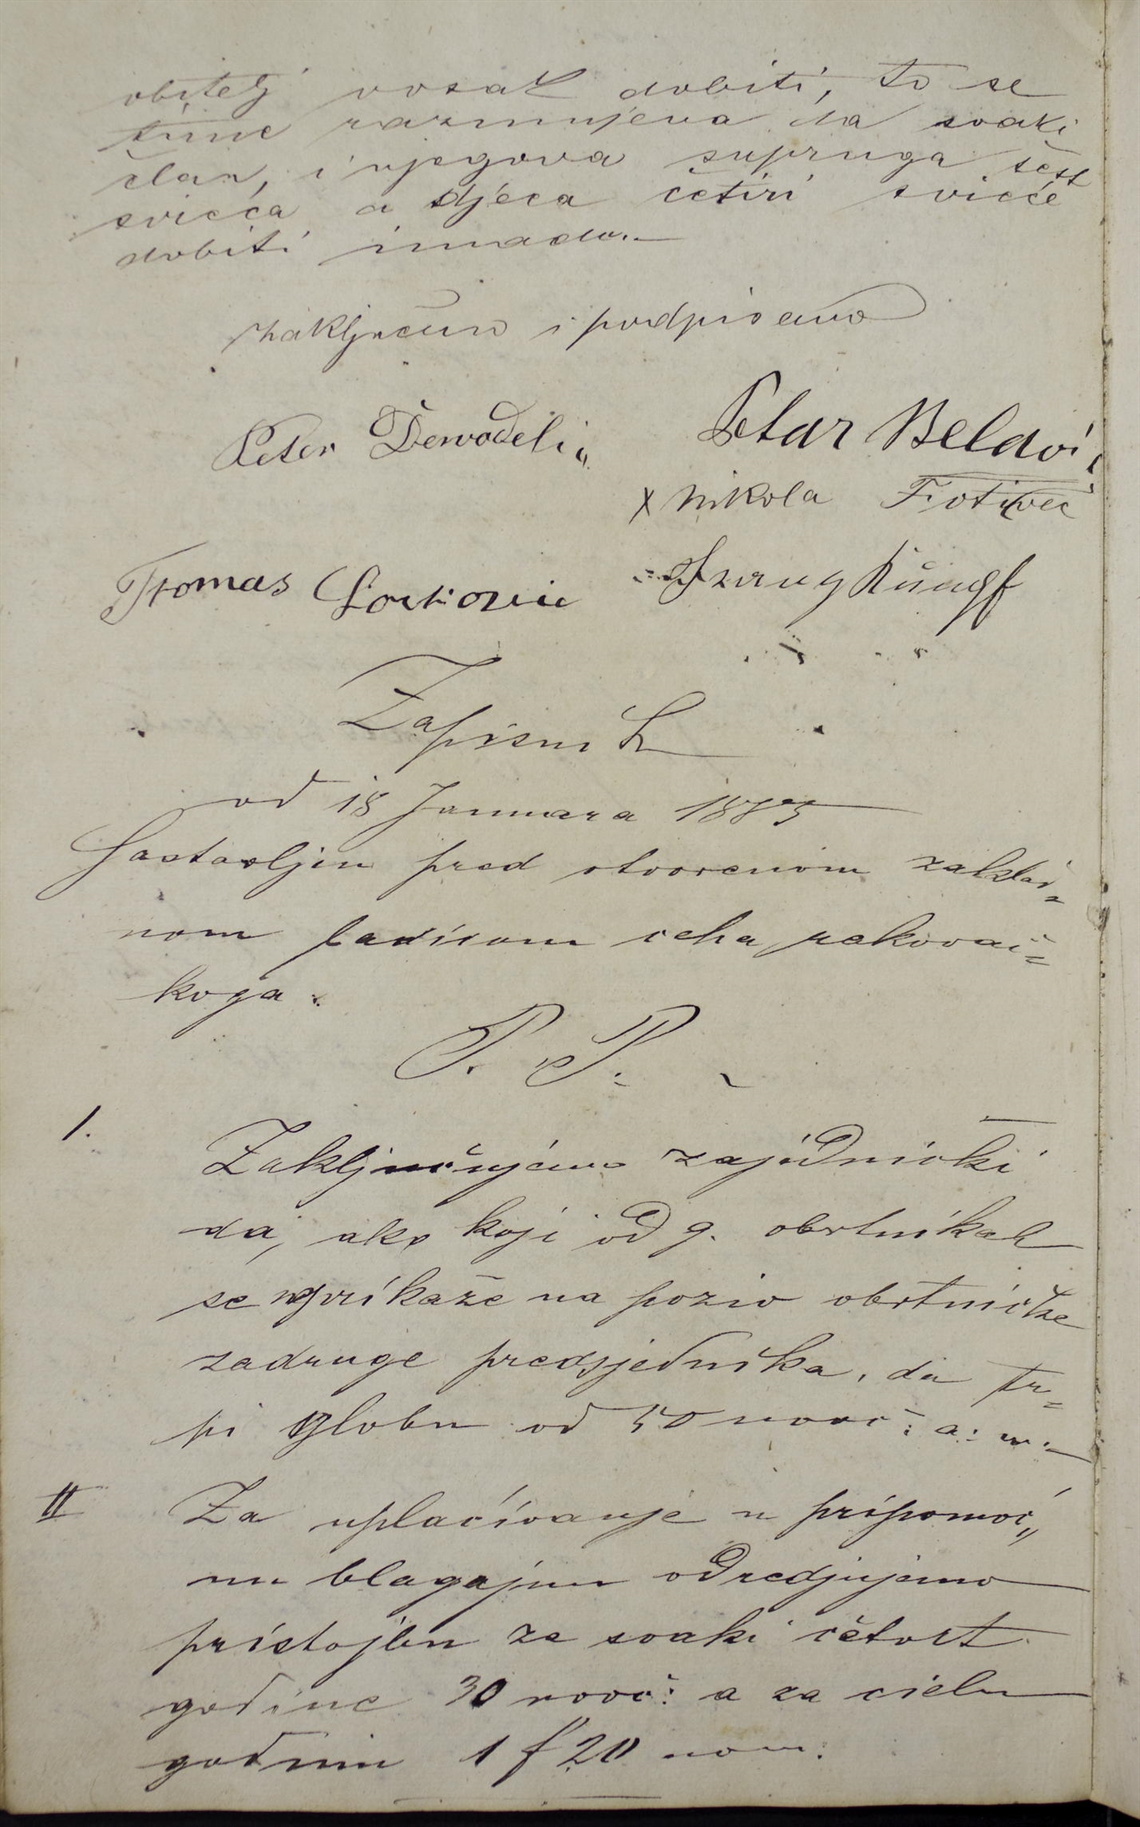 obitelj vosak dobiti, to se
time razumijeva da svaki
član, i njegova supruga šest
svieća a djeca četiri svieće
dobiti imadu.—
Zaključeno i podpisano
Peter Petar Belavi
x Nikola
Thomas
Zapisnik
od 18 Januara 1885
Sastavljen pred otvorenom zaklad=
nom ladicom ceha rukovač=
koga.
P. P.
I. Zaključujemo zajednički
da, ako koji od g. obrtnikah
se neprikaže na poziv obrtničke
zadruge predsjednika, da tr=
pi globu od 50 novč: a: v:—
II Za uplaćivanje u pripomoć„
nu blagajnu odredjujemo
pristojbu za svaki četvrt
godine 30 novč: a za cielu
godinu 1 f 20 nov: